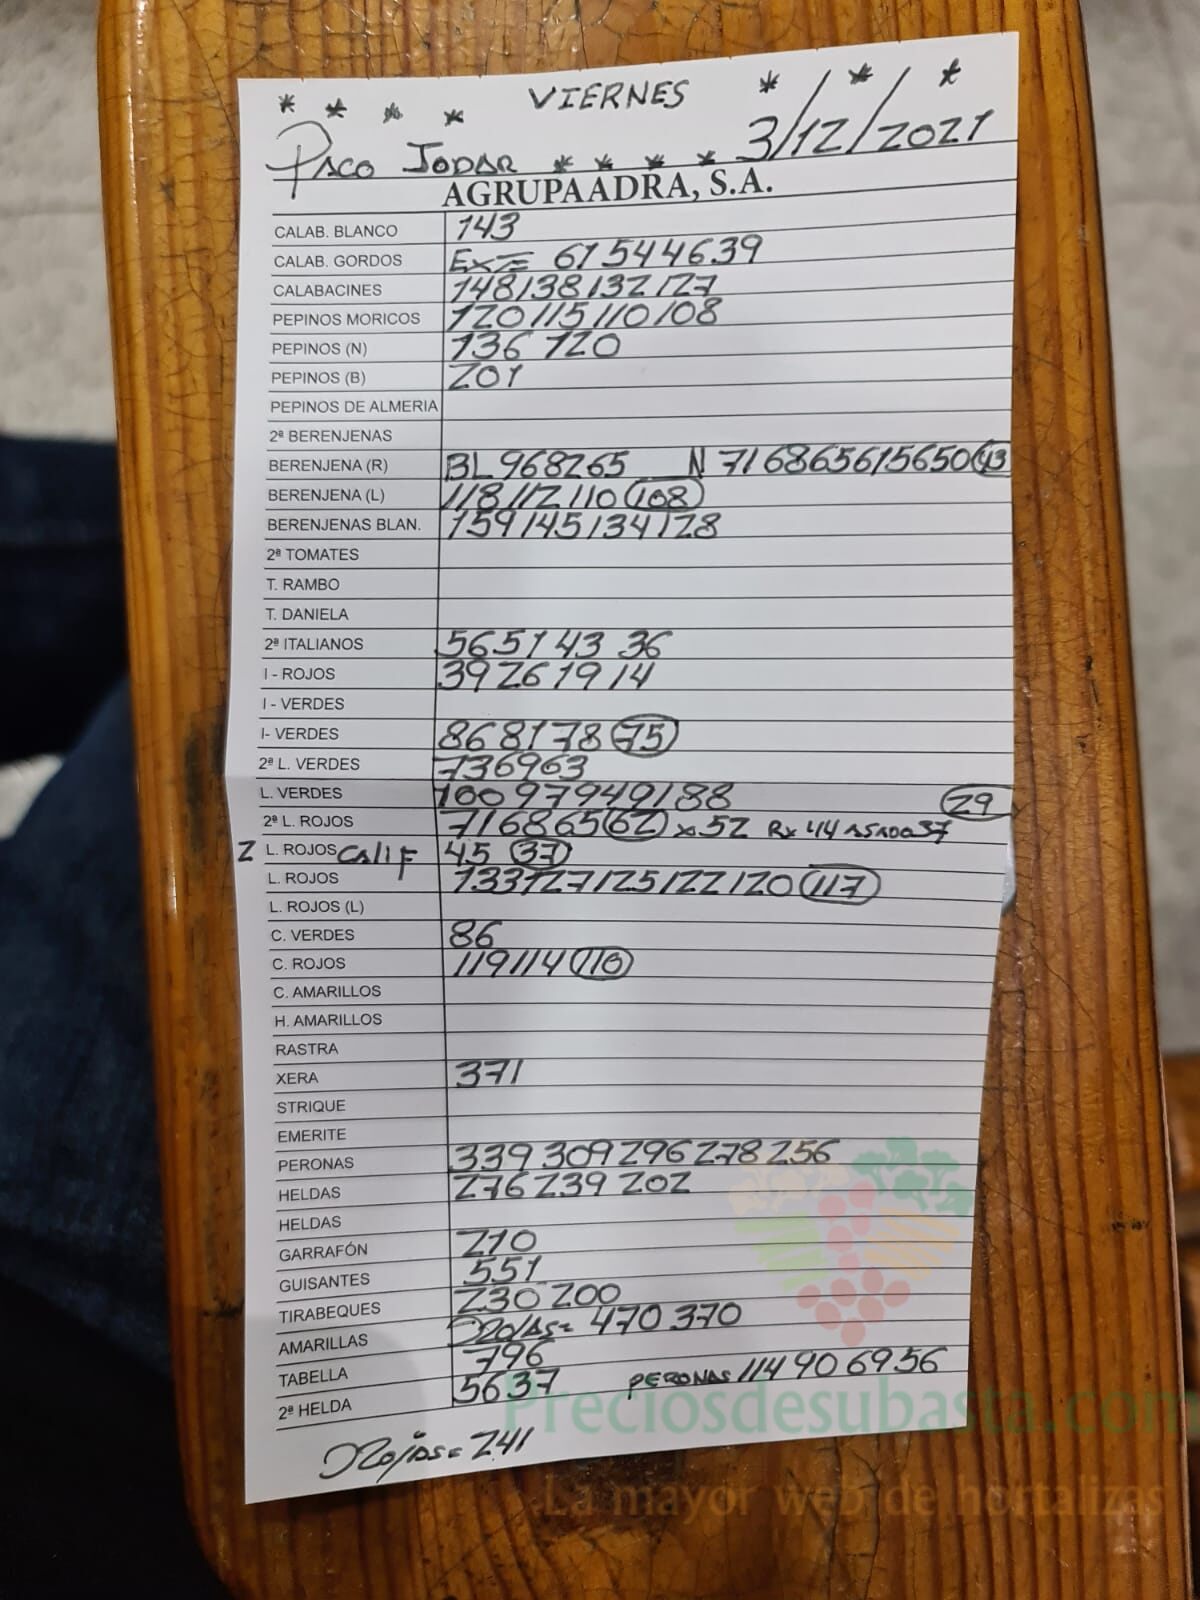 * * * * VIERNES * * *
PACO JODAR * * * * 3/12/2021
AGRUPAADRA, S.A.
CALAB. BLANCO 143
CALAB. GORDOS EXT= 61 54 46 39
CALABACINES 148 138 132 127
PEPINOS MORICOS 120 115 110 108
PEPINOS (N) 136 120
PEPINOS (B) 201
PEPINOS DE ALMERIA
2ª BERENJENAS
BERENJENA (R) BL 96 82 65 N 71 68 65 61 56 50 43
BERENJENA (L) 118 112 110 108
BERENJENAS BLAN. 159 145 134 128
2ª TOMATES
T. RAMBO
T. DANIELA
2ª ITALIANOS 56 51 43 36
I - ROJOS 39 26 19 14
I - VERDES
I- VERDES 86 81 78 75
2ª L. VERDES 73 69 63
L. VERDES 100 97 94 91 88
29
2ª L. ROJOS 71 68 65 62 x 52 Rx 44 37
2 L. ROJOS CALIF 45 37
L. ROJOS 133 127 125 122 120 117
L. ROJOS (L)
C. VERDES 86
C. ROJOS 119 114 110
C. AMARILLOS
H. AMARILLOS
RASTRA
XERA 371
STRIQUE
EMERITE
PERONAS 339 309 296 278 256
HELDAS 276 239 202
HELDAS
GARRAFÓN 210
GUISANTES 551
TIRABEQUES 230 200
AMARILLAS 470 370
TABELLA 796
2ª HELDA 56 37 PERONAS 114 90 69 56
Rojas = 241
Preciosdesubasta.com
La mayor web de hortalizas